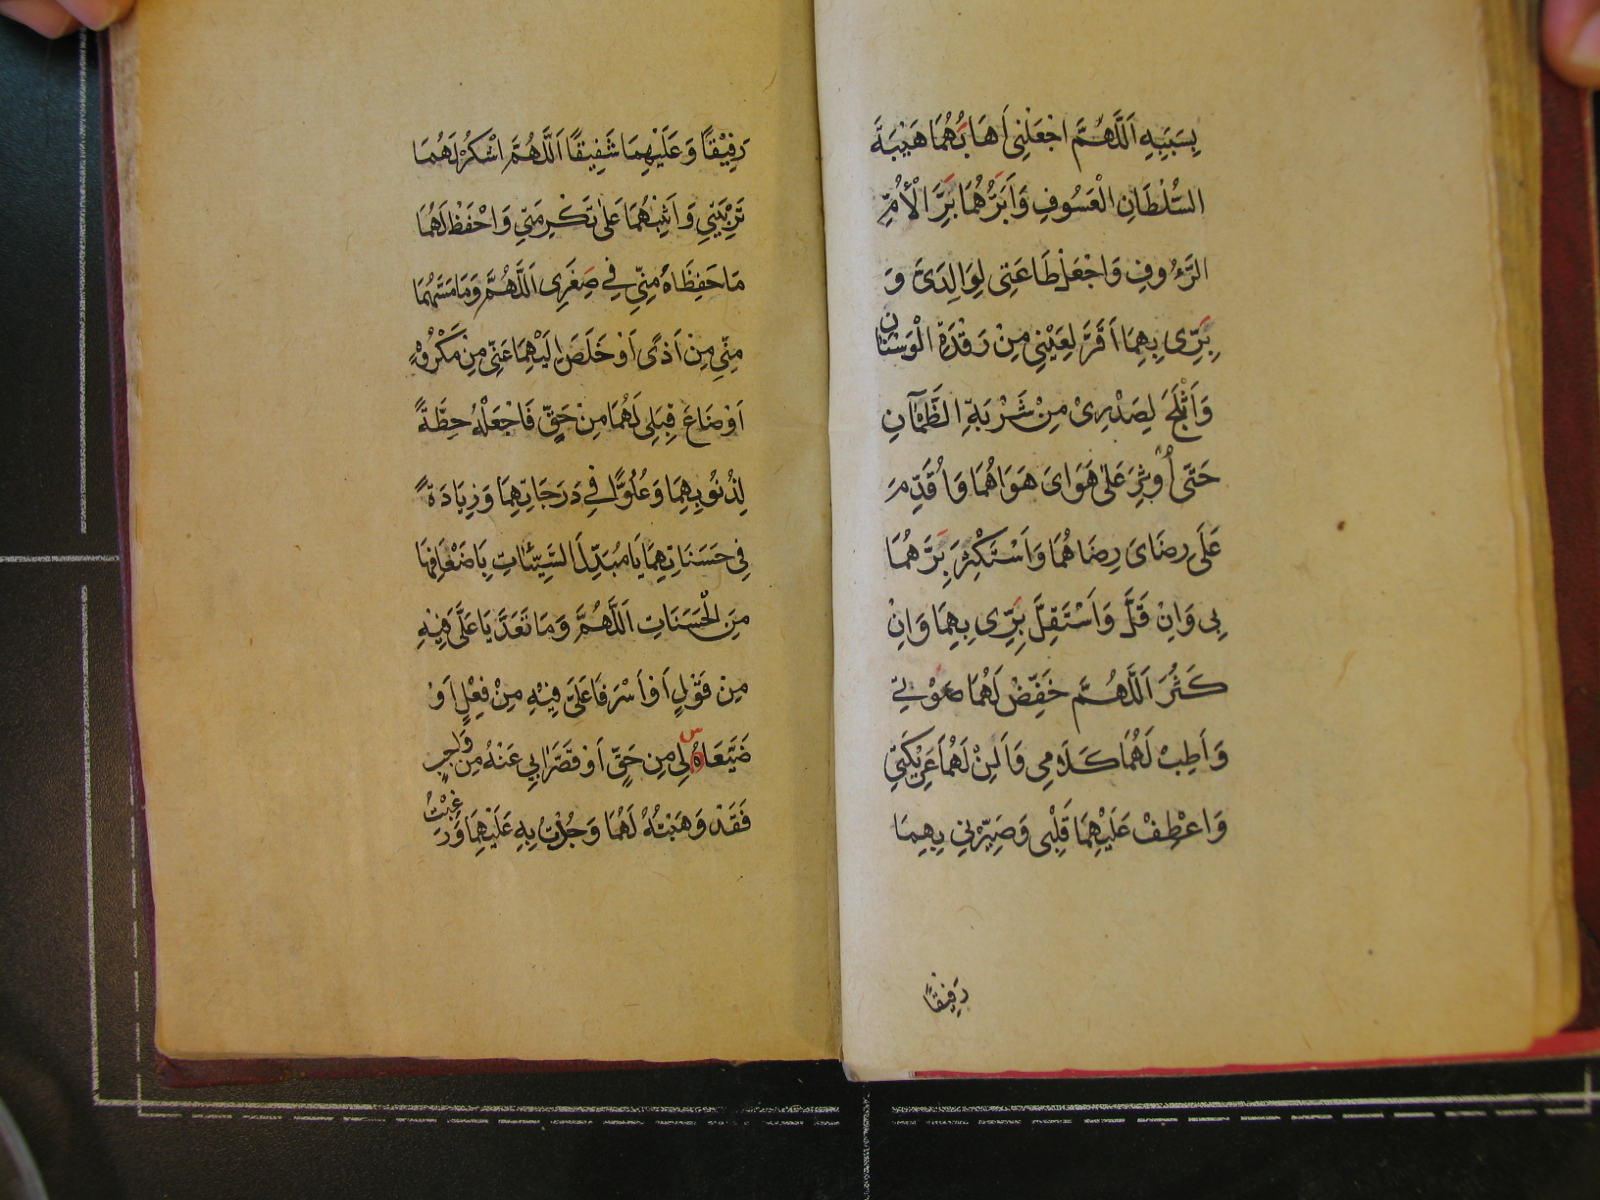 بِسَبَبِهِ اَللَّهُمَّ اجْعَلْنِى اَهَابُهُمَا هَيْبَةَ
السُّلْطَانِ الْعَسُوفِ وَاَبَرُّهُمَا بَرَّ الْاُمِّ
الرَّءُوفِ وَاجْعَلْ طَاعَتِى لِوَالِدَىَّ وَ
بِرِّى بِهِمَا اَقَرَّ لِعَيْنِى مِنْ رَقْدَةِ الْوَسْنَانِ
وَاَثْلَجَ لِصَدْرِىْ مِنْ شَرْبَةِ الظَّمْآنِ
حَتَّى اُوْثِرَ عَلٰى هَوَاىَ هَوَاهُمَا وَاُقَدِّمَ
عَلَى رِضَاىَ رِضَاهُمَا وَاَسْتَكْثِرَ بِرَّهُمَا
بِى وَاِنْ قَلَّ وَاَسْتَقِلَّ بِرِّى بِهِمَا وَاِنْ
كَثُرَ اَللَّهُمَّ خَفِّضْ لَهُمَا صَوْتِى
وَاَطِبْ لَهُمَا كَلَامِى وَاَلِنْ لَهُمَا عَرِيْكَتِى
وَاعْطِفْ عَلَيْهِمَا قَلْبِى وَصَيِّرْنِى بِهِمَا
رَفِيْقًا
رَفِيْقًا وَعَلَيْهِمَا شَفِيْقًا اَللَّهُمَّ اشْكُرْ لَهُمَا
تَرْبِيَتِي وَاَثِبْهُمَا عَلٰى تَكْرِمَتِي وَاحْفَظْ لَهُمَا
مَا حَفِظَاهُ مِنِّي فِي صِغَرِى اَللَّهُمَّ وَمَا مَسَّهُمَا
مِنِّي مِنْ اَذًى اَوْ خَلَصَ اِلَيْهِمَا عَنِّى مِنْ مَكْرُوْهٍ
اَوْ ضَاعَ قِبَلِى لَهُمَا مِنْ حَقٍّ فَاجْعَلْهُ حِطَّةً
لِذُنُوْبِهِمَا وَعُلُوًّا فِي دَرَجَاتِهِمَا وَزِيَادَةً
فِى حَسَنَاتِهِمَا يَا مُبَدِّلَ السَّيِّئَاتِ بِاَضْعَافِهَا
مِنَ الْحَسَنَاتِ اَللَّهُمَّ وَمَا تَعَدَّيَا عَلَىَّ فِيْهِ
مِنْ قَوْلٍ اَوْ اَسْرَفَا عَلَىَّ فِيْهِ مِنْ فِعْلٍ اَوْ
ضَيَّعَاهُ لِى مِنْ حَقٍّ اَوْ قَصَّرَا بِي عَنْهُ مِنْ وَاجِبٍ
فَقَدْ وَهَبْتُهُ لَهُمَا وَجُدْتُ بِهِ عَلَيْهِمَا وَرَغِبْتُ